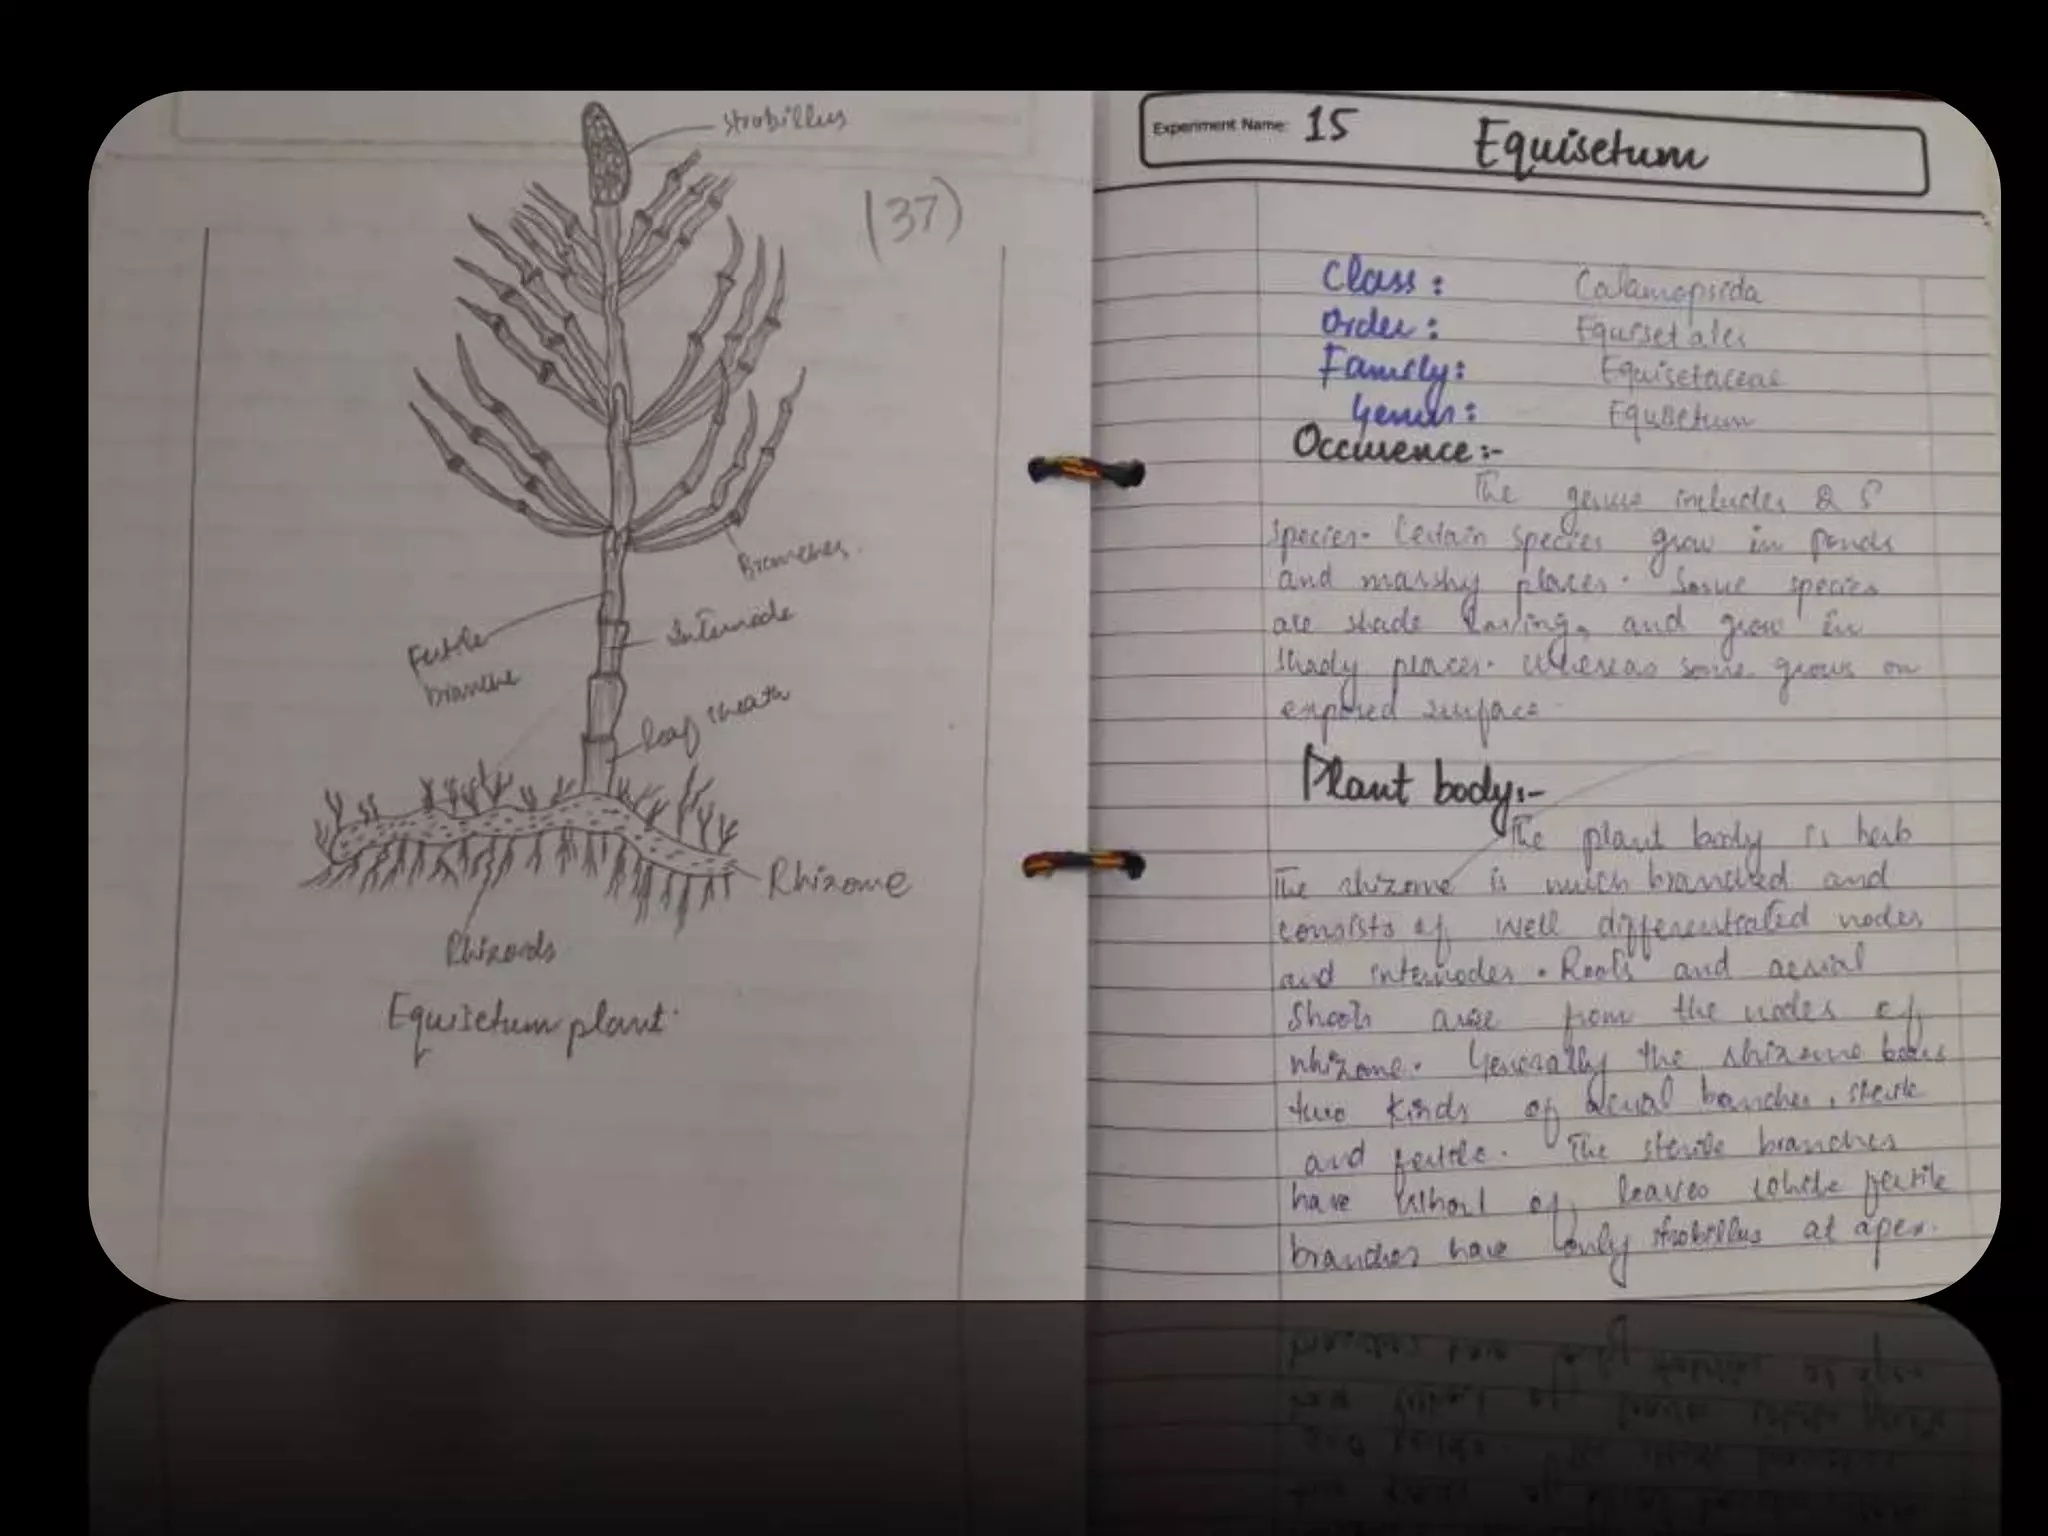 strobillus
(37)
Branches.
Internode
Fertle
branche
leaf sheath
Rhizome
Rhizoids
Equisetum plant.
Experiment Name: 15 Equisetum
Class: Calamopsida
Order: Equisetales
Family: Equisetaceae
Genus: Equisetum
Occurence:-
The genus includes 25
species. Certain species grow in ponds
and marshy places. Some species
are shade loving, and grow in
shady places. Whereas some grows on
exposed surface.
Plant body:-
The plant body is herb
The rhizome is much branched and
consists of well differentiated nodes
and internodes. Roots and aerial
Shoots arise from the nodes of
rhizome. Generally the rhizome bears
two kinds of aerial branches, sterile
and fertle. The sterile branches
have whorl of leaves while fertile
branches have only strobillus at apex.